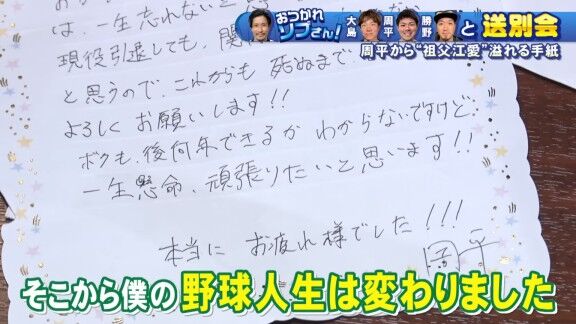 おつかれソフさん!
大島 周平 勝野 と 送別会
周平から“祖父江愛”溢れる手紙
は一生忘れないと
現役引退しても、関
と思うので、これからも 死ぬまで
よろしく お願いします!!
ボクも、後何年できるか わからないですけど、
一生懸命、頑張りたいと思います!!
本当に お疲れ様でした!!!
周平
そこから僕の野球人生は変わりました